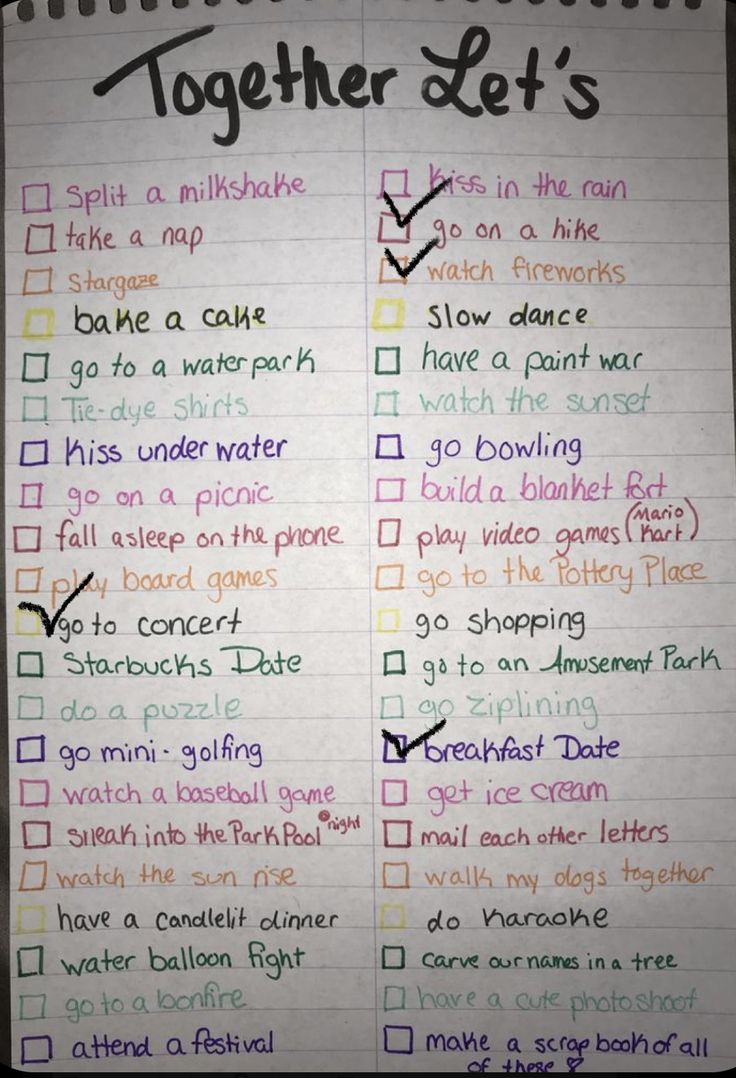 Together Let's
Split a milkshake
take a nap
Stargaze
bake a cake
go to a waterpark
Tie-dye shirts
Kiss under water
go on a picnic
fall asleep on the phone
play board games
go to concert
Starbucks Date
do a puzzle
go mini-golfing
watch a baseball game
sneak into the Park Pool @night
watch the sun rise
have a candlelit dinner
water balloon fight
go to a bonfire
attend a festival
Kiss in the rain
go on a hike
watch fireworks
Slow dance
have a paint war
watch the sunset
go bowling
build a blanket fort
play video games (Mario Kart)
go to the Pottery Place
go shopping
go to an Amusement Park
go ziplining
breakfast Date
get ice cream
mail each other letters
walk my dogs together
do Karaoke
carve our names in a tree
have a cute photoshoot
make a scrapbook of all
of these